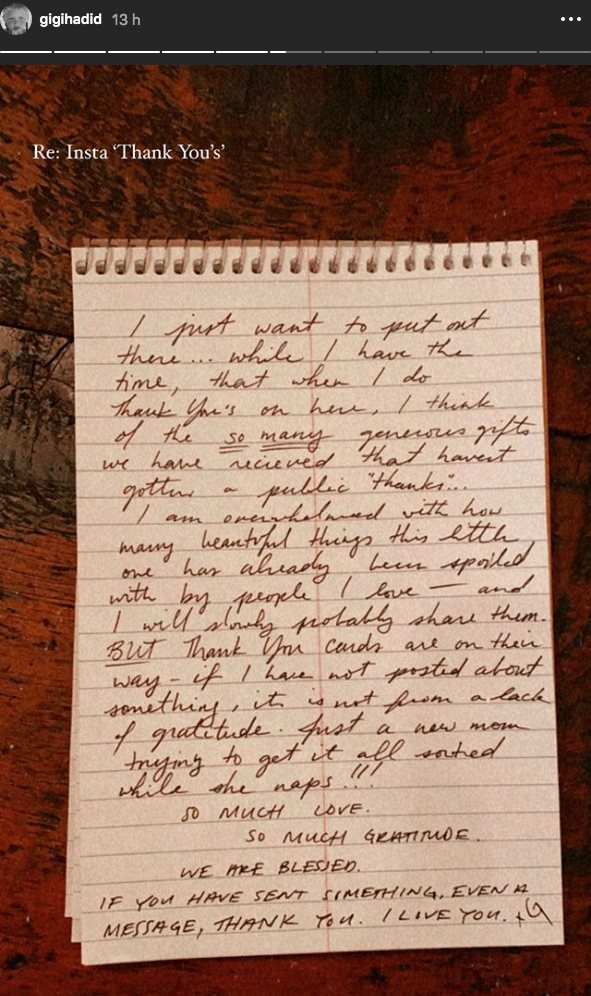 gigihadid 13 h
Re: Insta ‘Thank You’s’
I just want to put out
there... while I have the
time, that when I do
Thank You's on here, I think
of the so many generous gifts
we have recieved that havent
gotten a public "thanks"...
I am overwhelmed with how
many beautiful things this little
one has already been spoiled
with by people I love — and
I will slowly probably share them.
BUT Thank You Cards are on their
way - if I have not posted about
something, it is not from a lack
of gratitude. Just a new mom
trying to get it all sorted
while she naps!!!
SO MUCH LOVE.
SO MUCH GRATITUDE.
WE ARE BLESSED.
IF YOU HAVE SENT SOMETHING, EVEN A
MESSAGE, THANK YOU. I LOVE YOU. xG